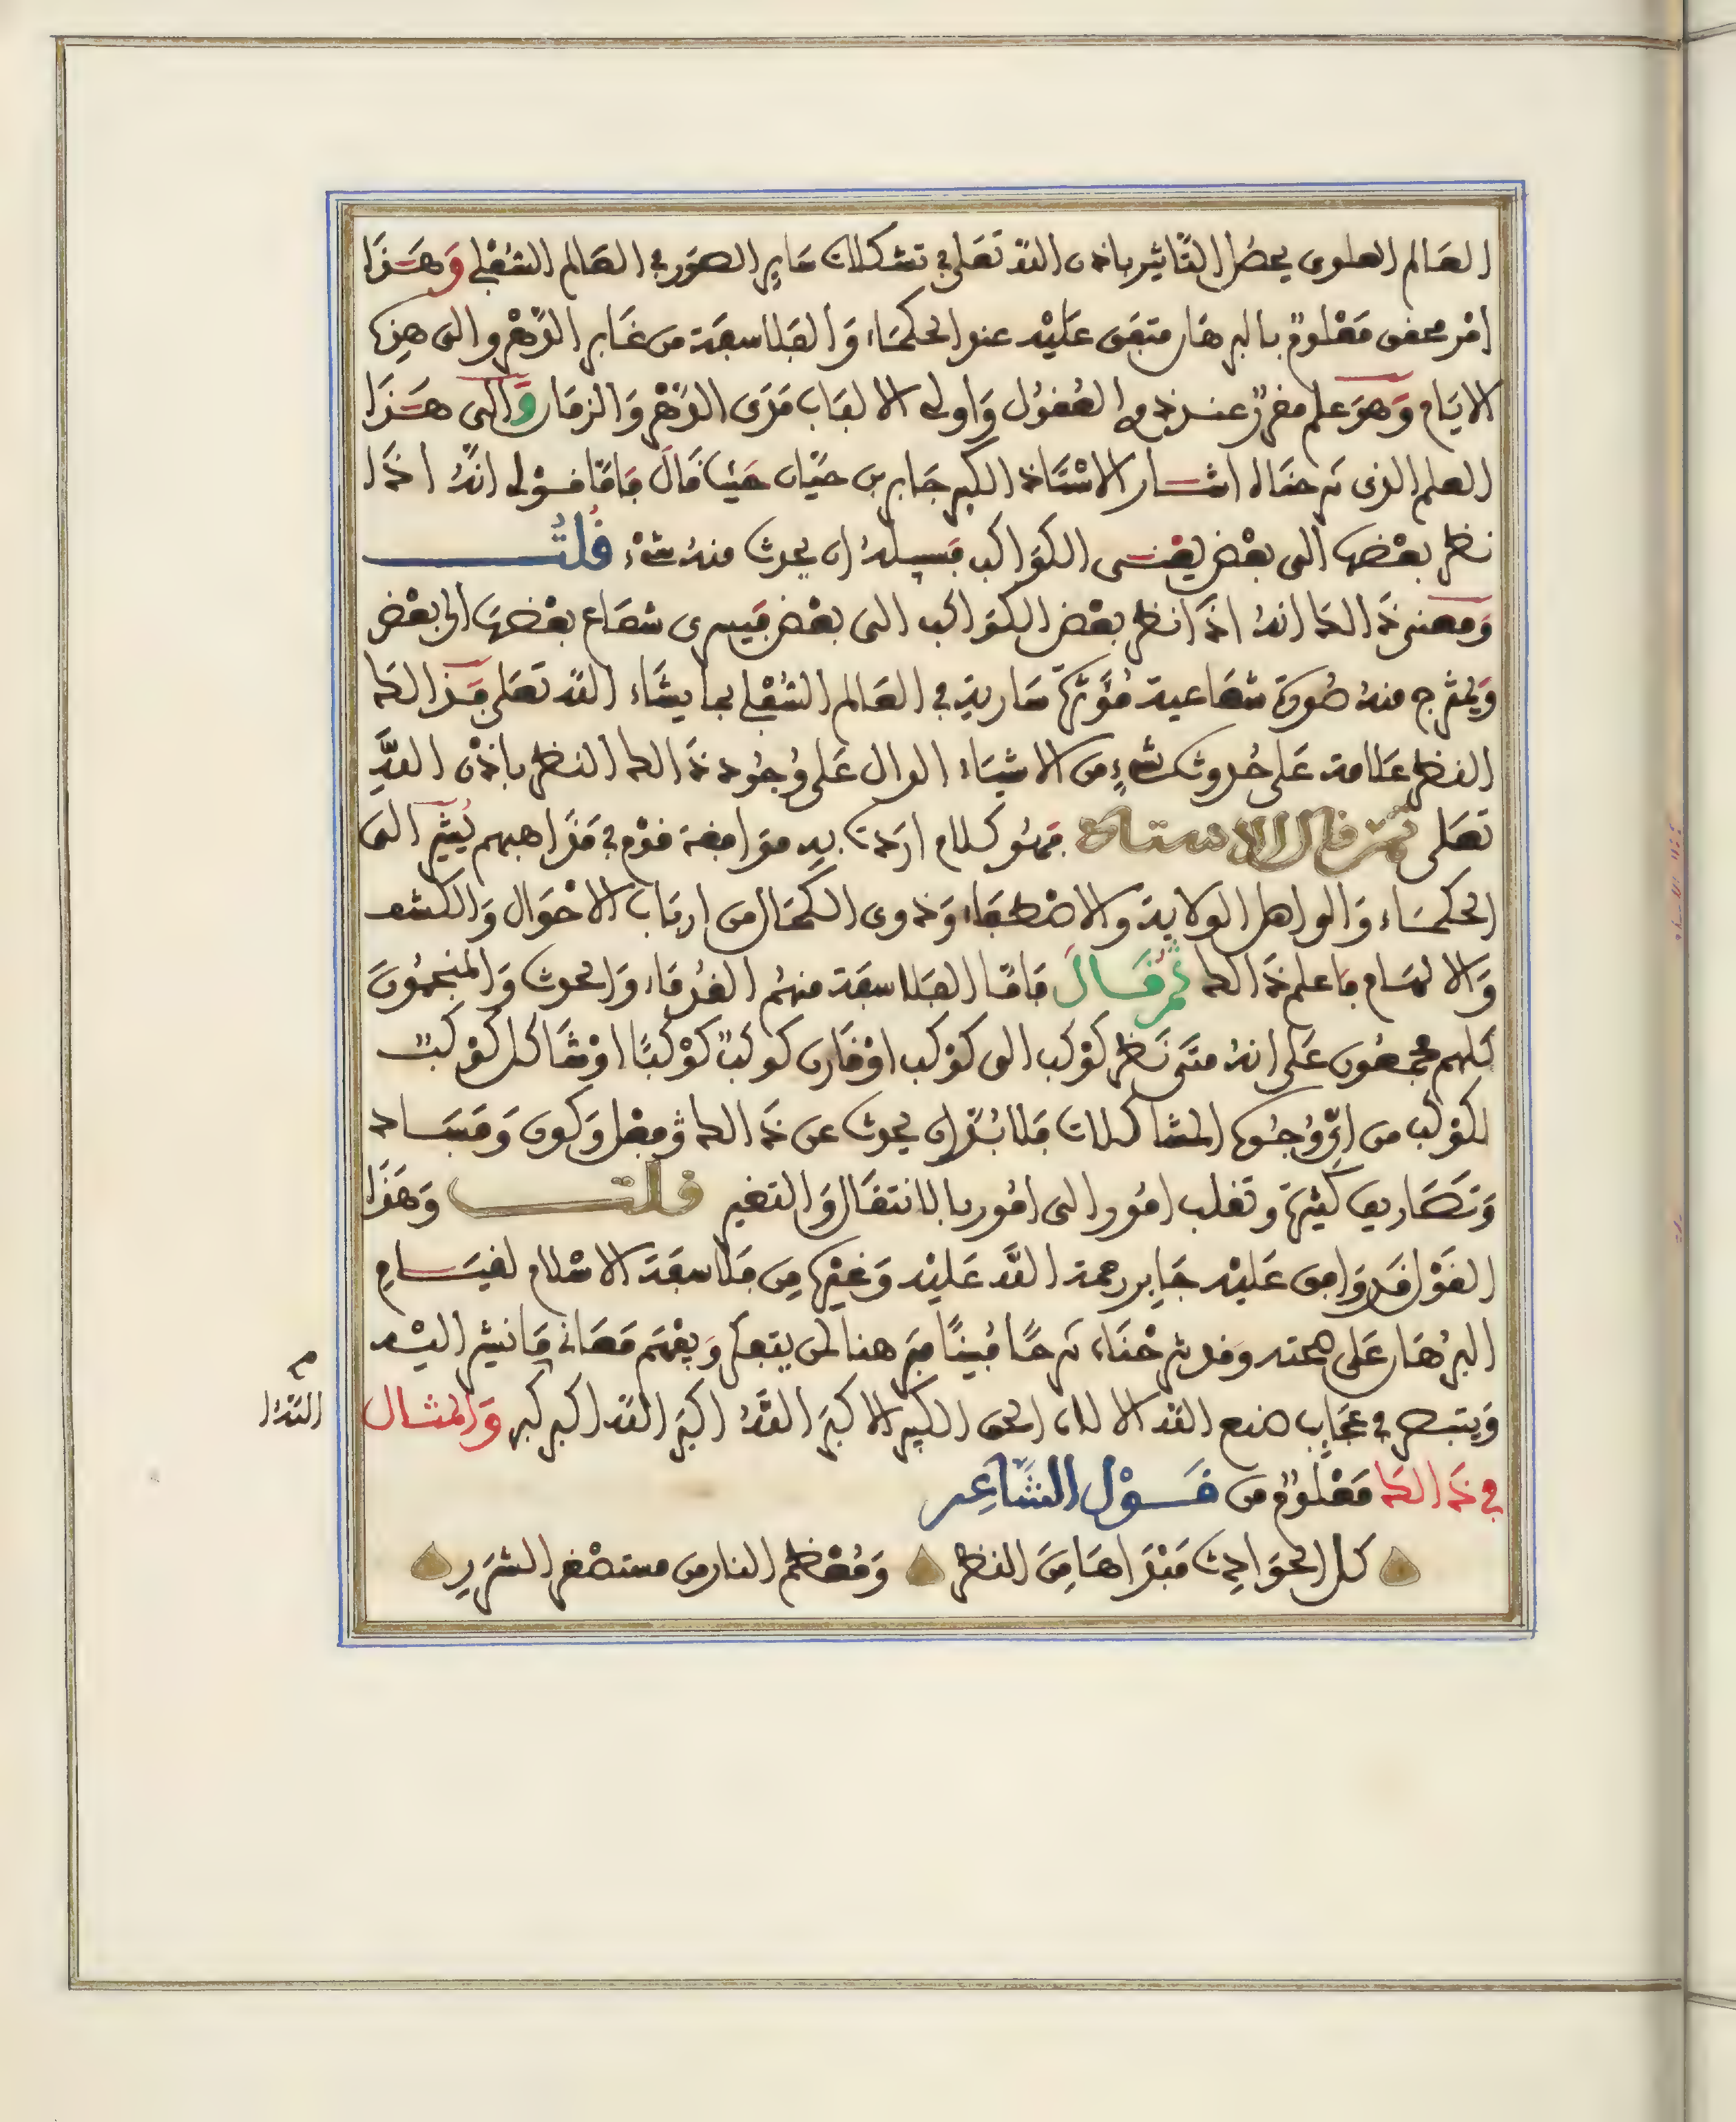 العَالم العلوى يحصُل التَّاثير باذن اللّه تعَلى في تشكلات سَاير الصوَر في العَالم السُفْلي وَهَـذَا
امْر محفق مَعْلومٌ بالبرهَان متفق عَليْه عند الحكمَاء وَالفلاسفَة من غَابر الدَّهْر والى هذه
الايَام وَهوَ علم مقررٌ عنـد ذوي العُقوُل وَاولى الالبَاب مَدَى الدّهْر وَالزمَان وَالى هَـذَا
العلم الذى شرحنَاه اشـار الاسْتَاذ الكبير جَابر بن حيَّان حَيْث قَالَ فَامّا قـوْلي انهُ اذَا
نظر بعْضها الى بعْض يعْنـى الكوَاكب فسبيلهُ ان يحدث منهُ شىْء قُلتُ
وَمعنى ذَالك انهُ اذَا نظر بعْض الكوَاكب الى بعْض فيَسرى شعَاع بعْضهَا الى بعْض
وَيخْرج منهُ صُورَة شعَاعية مُؤَثرَة سَارية في العَالم السُفْلي بما يشَاء اللّه تعَلى فهَـذا لك
النظر عَلامة عَلى حُدوث كل شىءٍ من الاشيَاء الدال عَلى وُجُود ذَالك النظر باذْن اللَّهِ
تعَلى ثم قال الاستاذ فهُو كلام اردت به موَافقة قوْم في مَذَاهبهم يُشير الى
الحكمَاء وَالواهل الولاية والاصْطفَاء وَذوى الكمَال من اربَاب الاحْوَال وَالكشف
وَالالهَام فاعلم ذَالك ثُم قَـالَ فَامّا الفَلاسفَة منهُم القُدمَاء وَالحدث وَالمنجمُونَ
كلهم مجمعُون عَلى انهُ متَى نَظر كَوْكب الى كوْكب اوْ قَارن كوكبٌ كوْكبًا اوْ شَاكل كوْكبٌ
لكوْكب من اىّ وُجُوه المشاكلات فَلا بُدَّ ان يحدث عن ذَالك فِعْل وَكون وَفسَـاد
وَتصَاريف كثيرَة وتقلب امُور الى امُور بالانتقَال وَالتغير قلت وَهَذَا
القَوْل قَد وَافق عَليْه جَابِر رحمة اللَّه عَليْه وَغيْرُه مِن فَلاسفَة الاسْلام لقيَـامِ
البرُهَان عَلى صحته وقد شرحْنَاه شرحًا مُبينًا فيَ هنا لمن يتعلم وَيفْهَم مَعَانى مَا نشير اليْـه
وَيتبصر في عجَايب صنع اللّه الالاه الحق الكبير الاكبر اللّهُ اكبَر اللّه اكبر كبر وَالمثـال
في ذَالك مَعْلومٌ من قَـوْل الشَّاعِر
كل الحوَادِث مَبْدَاهَا مِنَ النظر وَمُعْظم النار من مستصْغر الشرَرِ
م
اللّهُ ا